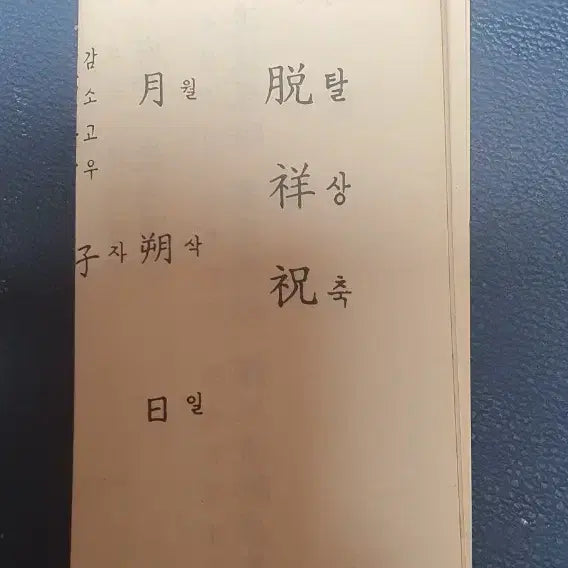 脱탈 祥상 祝축
月월 朔삭 日일
子자
감소고우